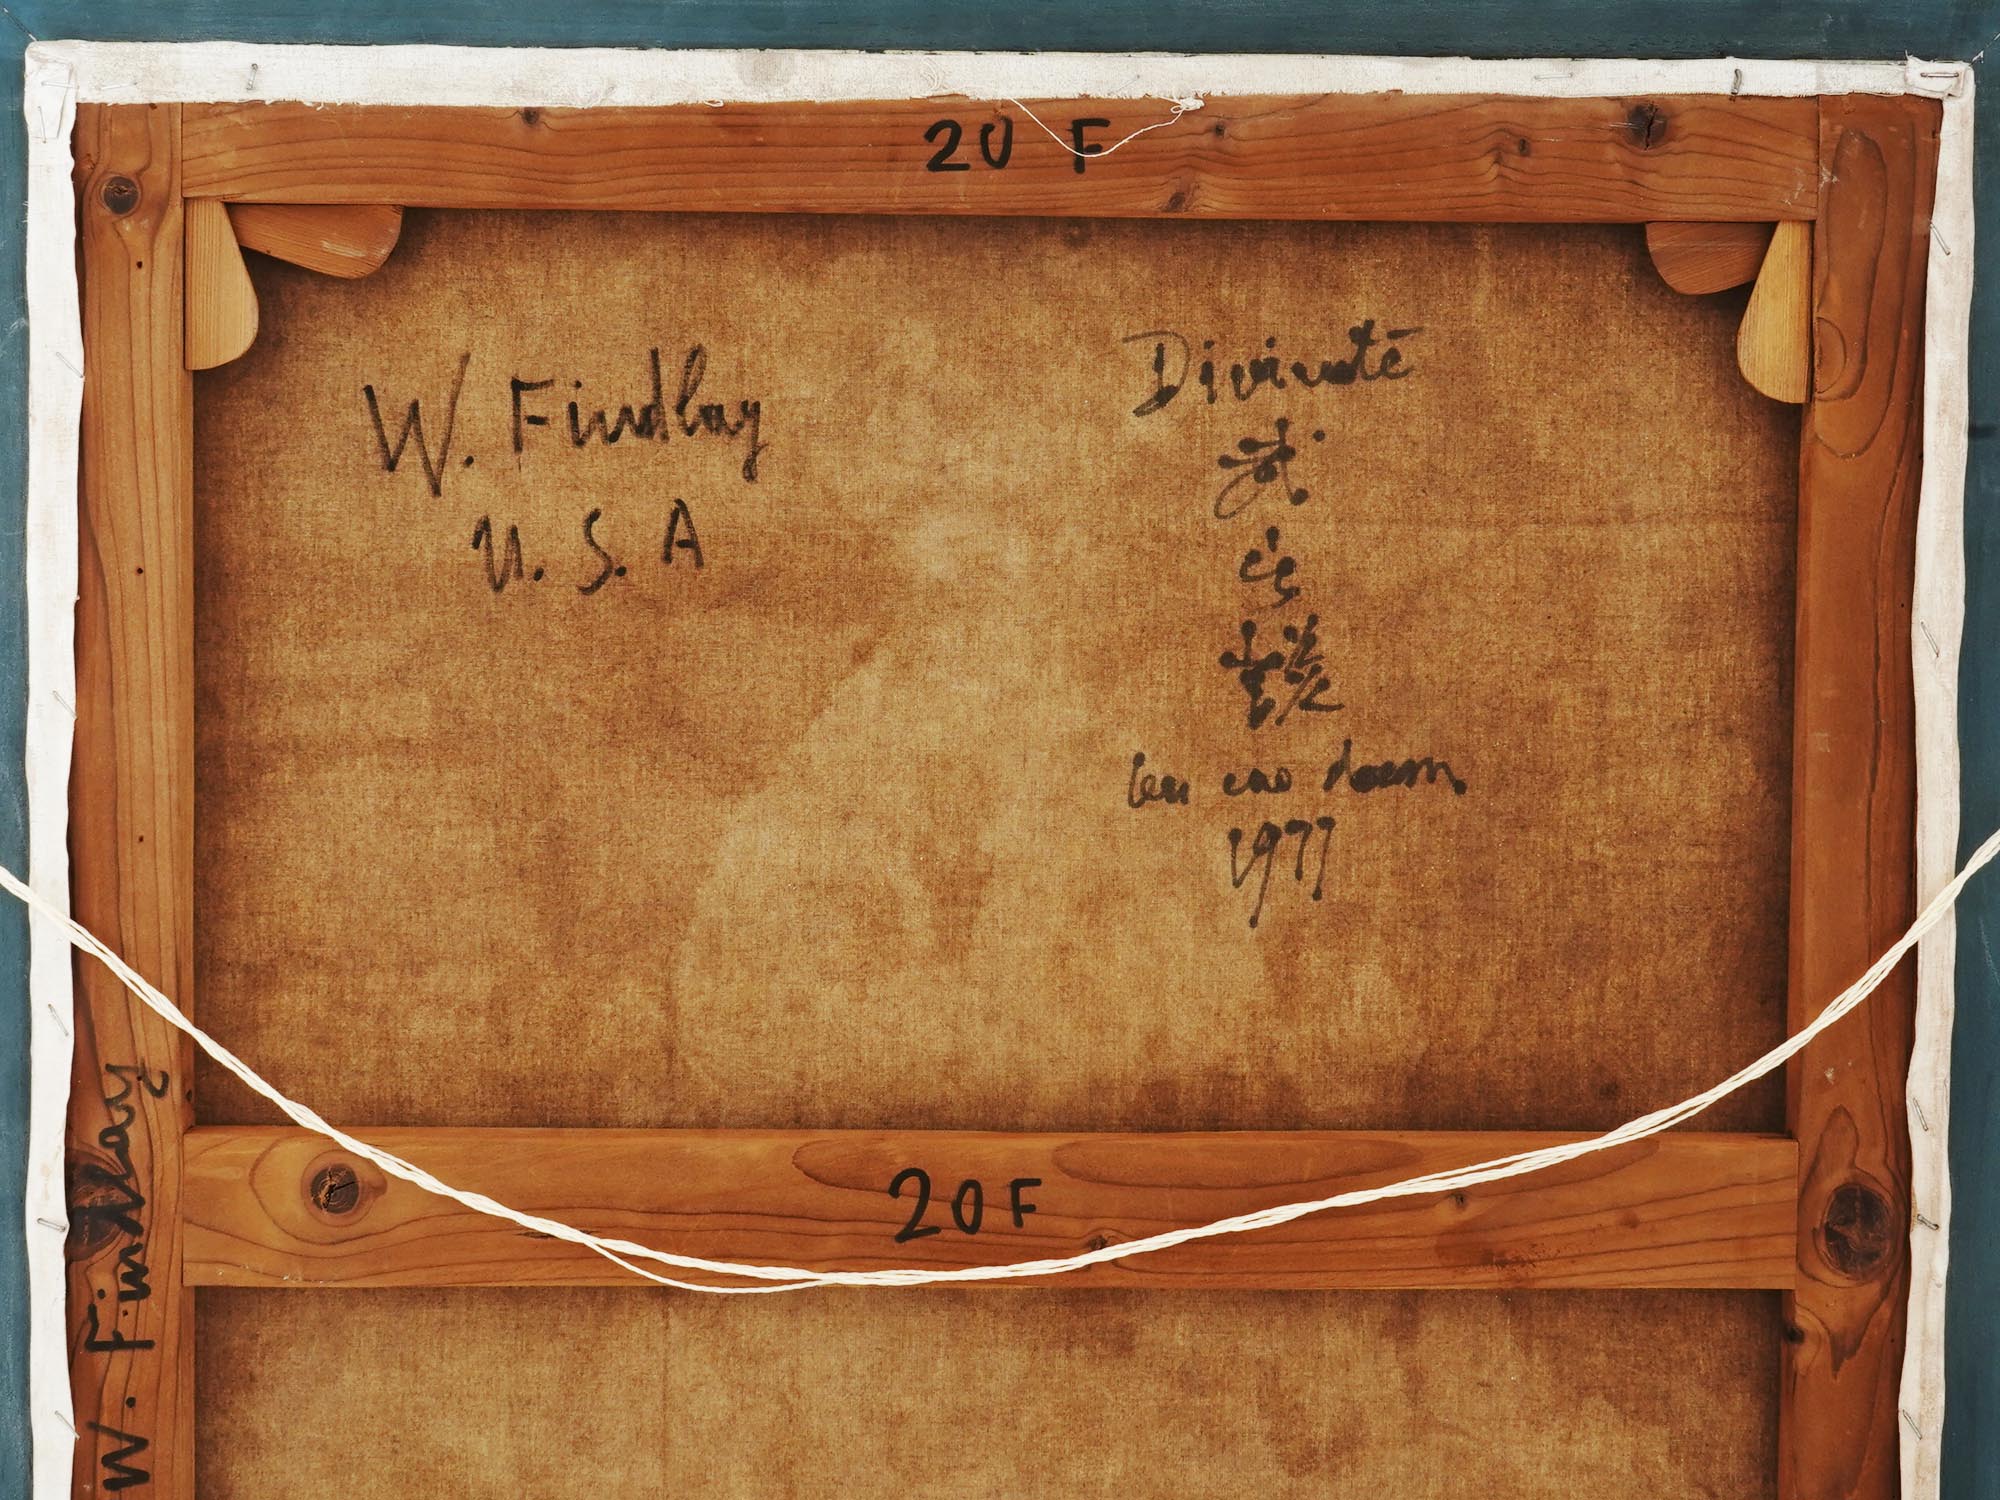 20 F
W. Findlay
U. S. A
Divinité
武
高
談
vu cao dam
1977
20 F
W. Findlay